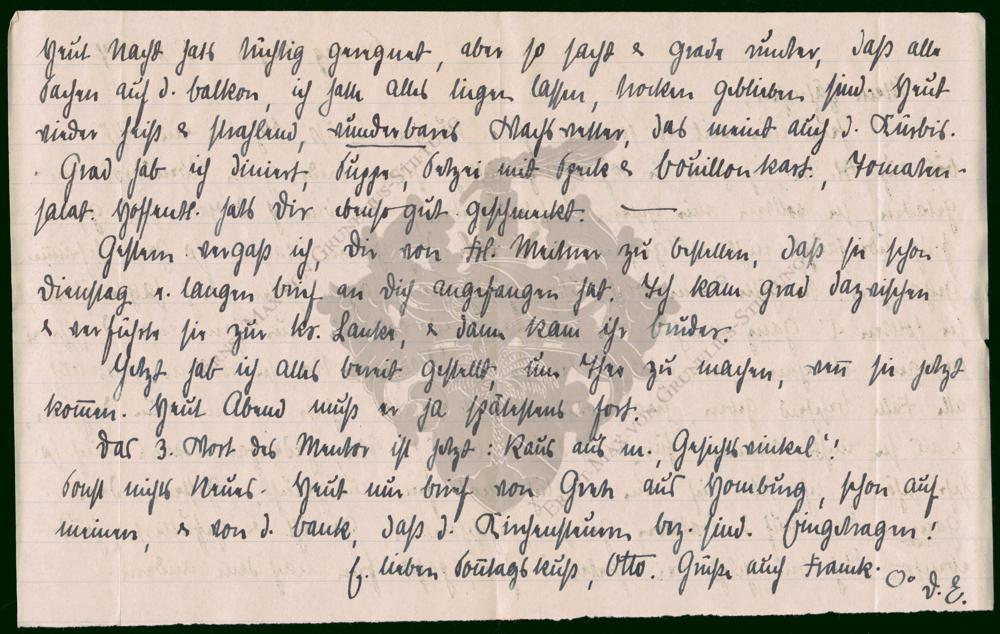 Heut Nacht hats tüchtig geregnet, aber so sacht & grade runter, daß alle
Sachen auf d. Balkon, ich hatte alles liegen lassen, trocken geblieben sind. Heut
wieder heiß & strahlend, wunderbares Wachswetter, das meint auch d. Kürbis.
Grad hab ich diniert, Suppe, Setzei mit Speck & Bouillonkart., Tomaten-
salat. Hoffentl. hats Dir ebenso gut geschmeckt. —
Gestern vergaß ich, Dir von Frl. Meitner zu bestellen, daß sie schon
Dienstag e. langen Brief an Dich angefangen hat. Ich kam grad dazwischen
& verführte sie zur Kr. Lanke, & dann kam ihr Bruder.
Jetzt hab ich alles bereit gestellt, um Thee zu machen, wenn sie jetzt
kommen. Heut Abend muß er ja spätestens fort.
Das 3. Wort des Mentor ist jetzt: "Raus aus m. Gesichtswinkel"!
Sonst nichts Neues. Heut nur Brief von Grete aus Homburg, schon auf
meinen, & von d. Bank, daß d. Kirchensteuern bez. sind. Eingetragen!
E. lieben Sonntagskuß, Otto. Grüße auch Franck. D. E.